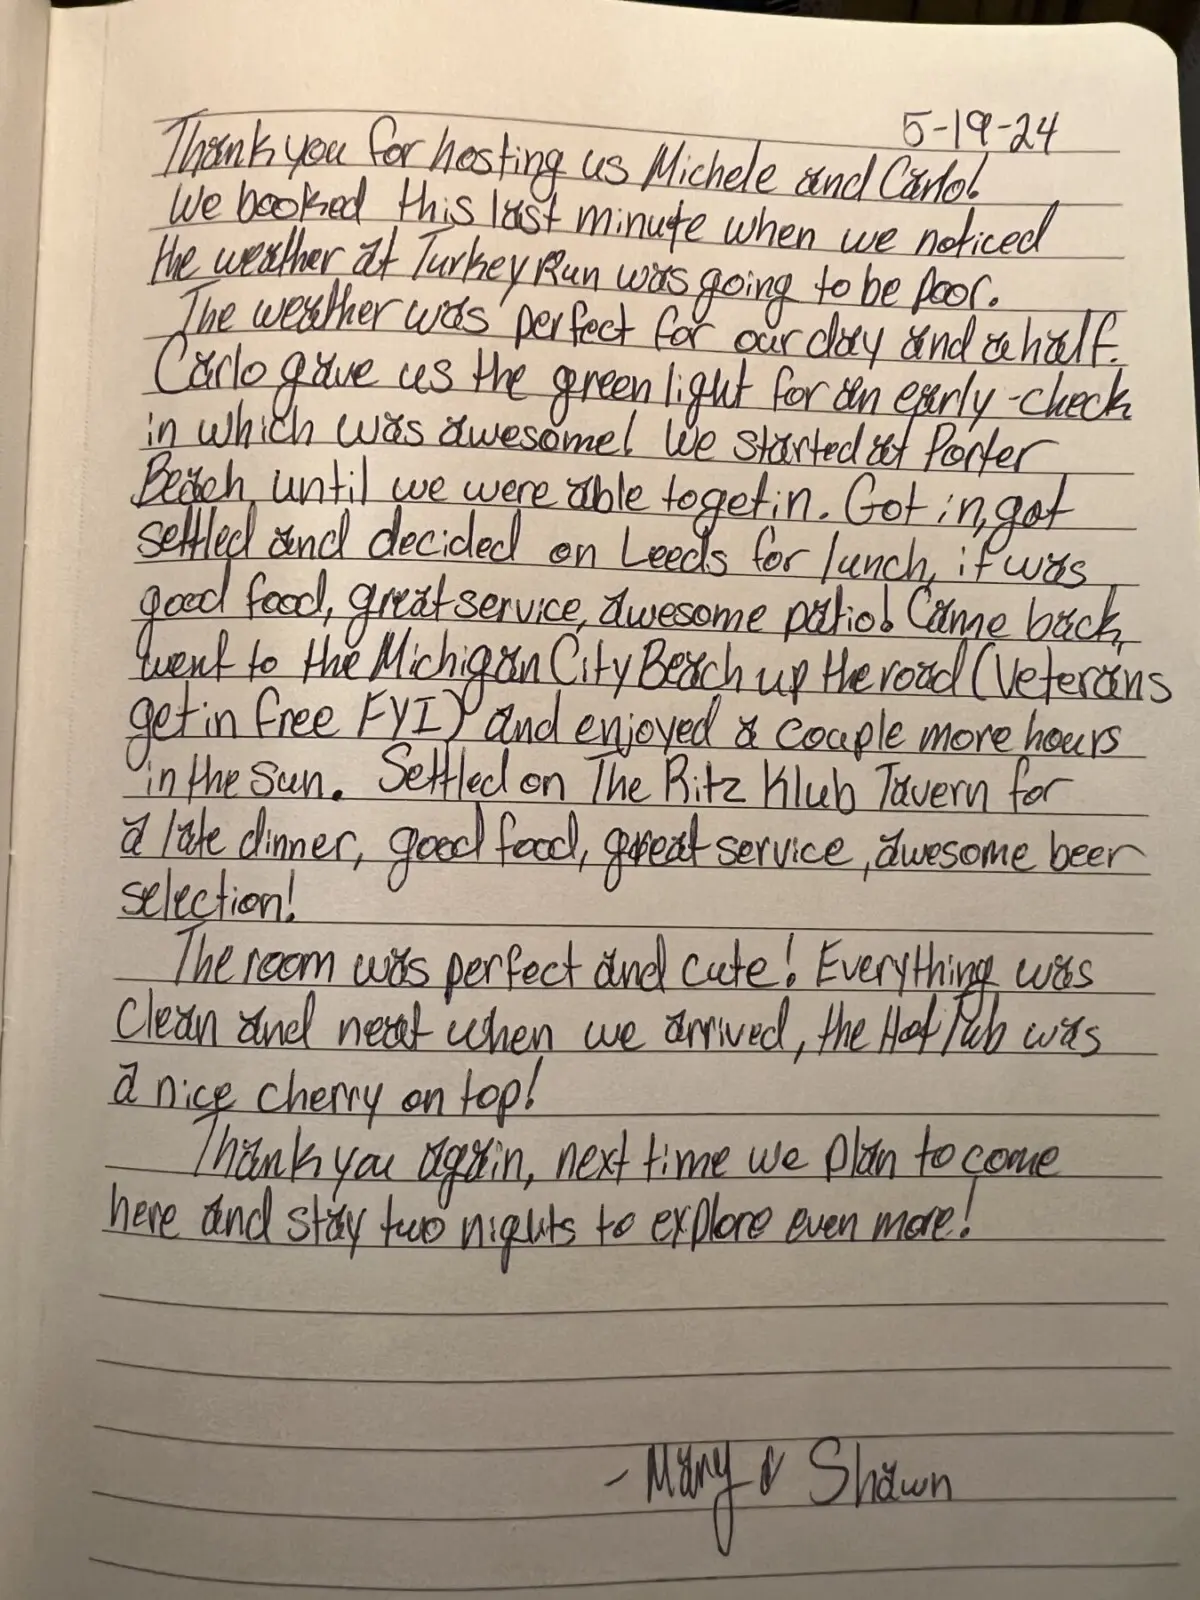 5-19-24
Thank you for hosting us Michele and Carlo!
We booked this last minute when we noticed
the weather at Turkey Run was going to be poor.
The weather was perfect for our day and a half.
Carlo gave us the green light for an early-check
in which was awesome! We started at Porter
Beach until we were able to get in. Got in, got
settled and decided on Leeds for lunch, it was
good food, great service, awesome patio! Came back,
went to the Michigan City Beach up the road (Veterans
get in free FYI) and enjoyed a couple more hours
in the sun. Settled on The Ritz Klub Tavern for
a late dinner, good food, great service, awesome beer
selection!
The room was perfect and cute! Everything was
clean and neat when we arrived, the Hot Tub was
a nice cherry on top!
Thank you again, next time we plan to come
here and stay two nights to explore even more!
- Mary & Shawn